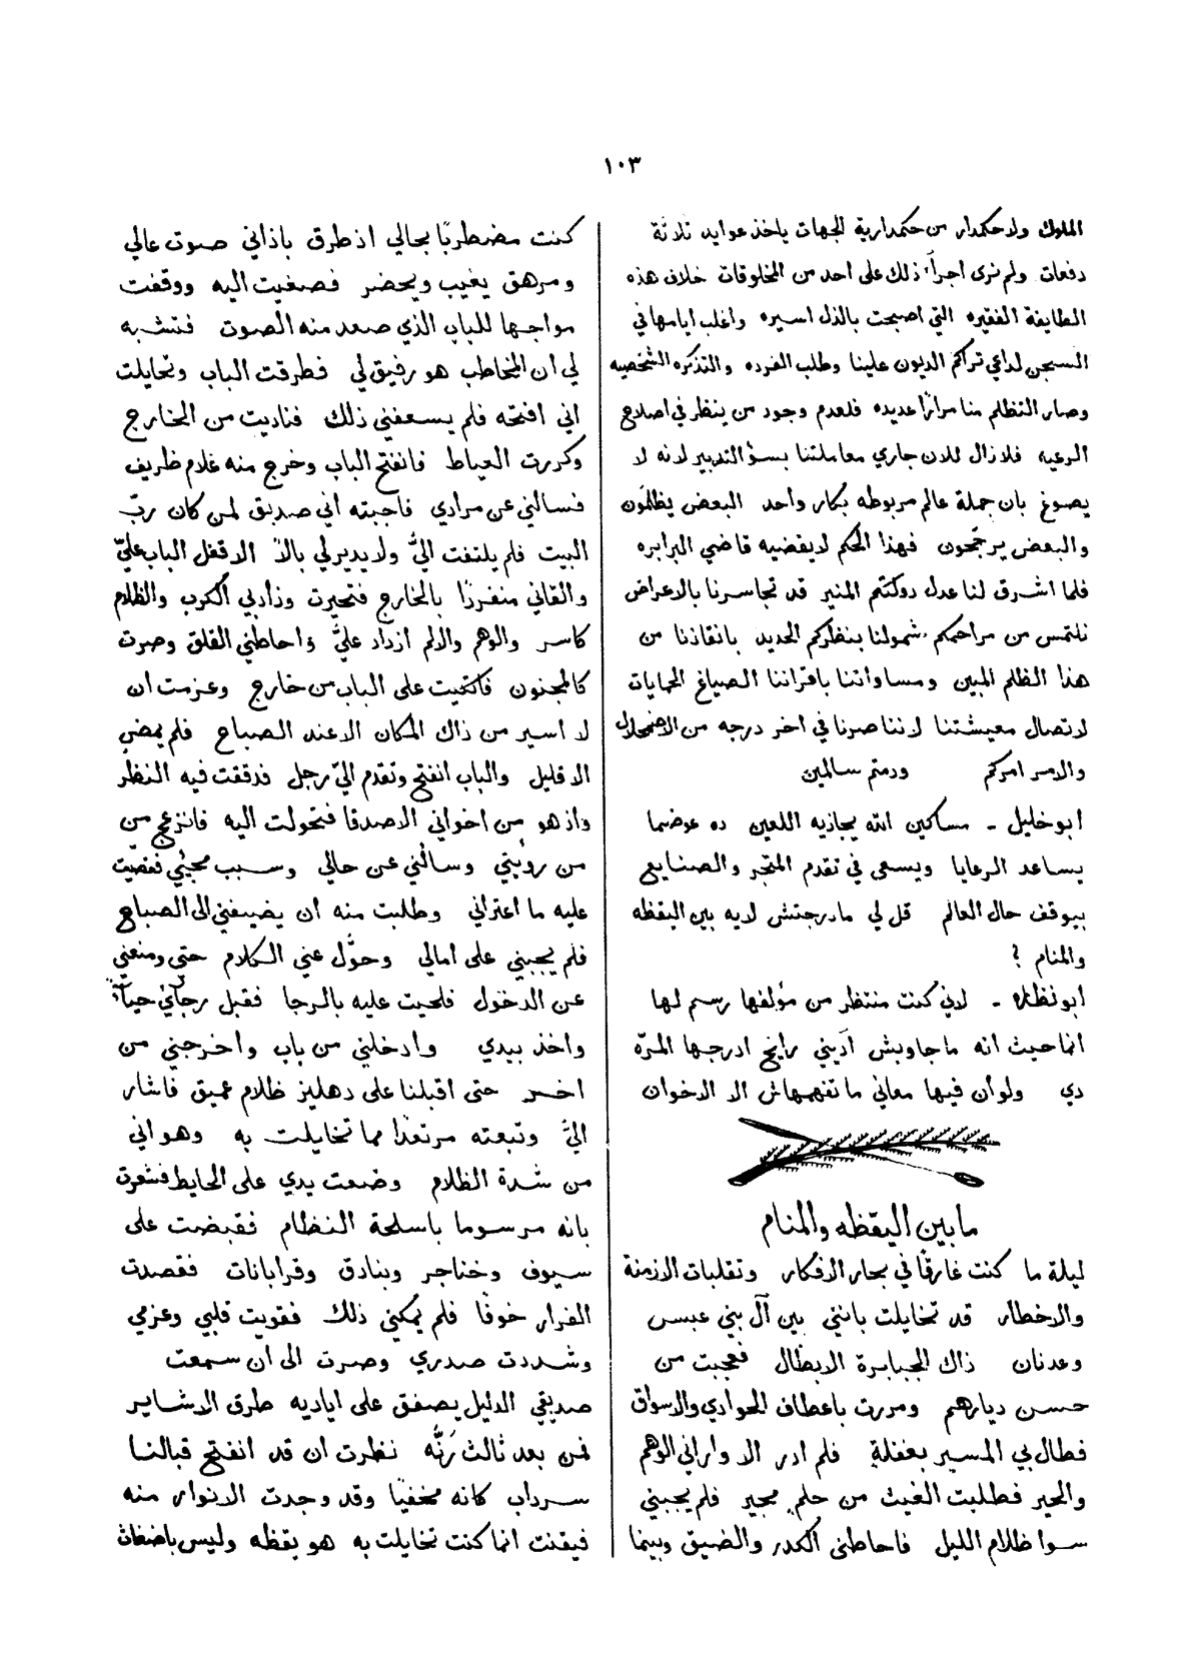 ١٠٣
الملوك ولا حكمدار من حكمدارية الجهات ياخذ عوايد ثلاثة
دفعات ولم نرى اجرآء ذلك على احد من المخلوقات خلاف هذه
الطايفة الفقيره التي اصبحت بالذل اسيره واغلب ايامها في
السجن لداعي تراكم الديون علينا وطلب الفرده والتذكره الشخصيه
وصار التظلم منا مرارًا عديده فلعدم وجود من ينظر في اصلاح
الرعيه فلازال للان جاري معاملتنا بسؤ التدبير لانه لا
يصوغ بان جملة عالم مربوطه بكار واحد البعض يظلمون
والبعض يرتجحون فهذا الحكم لا يقضيه قاضي البرابره
فلما اشرق لنا عدل دولتكم المنير قد تجاسرنا بالاعراض
نلتمس من مراحمكم شمولنا بنظركم الحديد بانقاذنا من
هذا الظلم المبين ومساواتنا باقراننا الصياغ الحمايات
لاتصال معيشتنا لاننا صرنا في اخر درجه من الاضمحلال
والامر امركم ودمتم سالمين
ابو خليل ـ مساكين الله يجازيه اللعين ده عوضما
يساعد الرعايا ويسعى في تقدم المتجر والصنايع
بيوقف حال العالم قل لي ما درجتش لايه بين اليقظه
والمنام ؟
ابو نظاره ـ لاني كنت منتظر من مؤلفها رسم لها
انما حيث انه ما جاوبش آديني رايح ادرجها المرّة
دي ولو أن فيها معاني ما تفهمهاش الا الاخوان
ما بين اليقظه والمنام
ليلة ما كنت غارقًا في بحار الافكار وتقلبات الازمنة
والاخطار قد تخايلت بانني بين آل بني عبس
وعدنان ذاك الجبابرة الابطال فعجبت من
حسن ديارهم ومررت باعطاف الحوادي والاسواق
فطال بي المسير بغفلةٍ فلم ادر الا واراني الوهم
والحير فطلبت الغيث من حلمٍ مجيرٍ فلم يجبني
سوا ظلام الليل فاحاطني الكدر والضيق وبينما
كنت مضطربًا بحالي اذ طرق باذاني صوت عالي
ومرهق يغيب ويحضر فصغيت اليه ووقفت
مواجها للباب الذي صعد منه الصوت فتشبه
لي ان المخاطب هو رفيق لي فطرقت الباب وتحايلت
اني افتحه فلم يسعفني ذلك فناديت من الخارج
وكررت العياط فانفتح الباب وخرج منه غلام ظريف
فسالني عن مرادي فاجبته اني صديق لمن كان ربّ
البيت فلم يلتفت اليّ ولا يدير لي بالاً الا قفل الباب عليّ
والقاني منفردًا بالخارج فتحيرت وزاد بي الكرب والظلام
كاسر والوهم والالم ازداد عليّ واحاطني القلق وصرت
كالمجنون فاتكيت على الباب من خارج وعزمت ان
لا اسير من ذاك المكان الا عند الصباح فلم يمض
الا قليل والباب انفتح وتقدم اليّ رجل فدققت فيه النظر
واذ هو من اخواني الاصدقا فتحولت اليه فانزعج من
من رؤيتي وسألني عن حالي وسبب مجيئي فقصيت
عليه ما اعتراني وطلبت منه ان يضيفني الى الصباح
فلم يجبني على امالي وحوّل عني الكلام حتى ومنعني
عن الدخول فلحيت عليه بالرجا فقبل رجآئي حيآءً
واخذ بيدي وادخلني من باب واخرجني من
اخر حتى اقبلنا على دهليز ظلام عميق فاشار
اليّ وتبعته مرتعدًا مما تخايلت به وهو اني
من شدة الظلام وضعت يدي على الحايط فشعرت
بانه مرسوما باسلحة النظام فقبضت على
سيوف وخناجر وبنادق وقرابانات فقصدت
الفرار خوفًا فلم يمكني ذلك فقويت قلبي وعزمي
وشددت صدري وصرت الى ان سمعت
صديقي الدليل يصفق على اياديه طرق الاشاير
فمن بعد ثالث رنّه نظرت ان قد انفتح قبالنا
سرداب كانه مخفيًا وقد وجدت الانوار منه
فيقنت انما كنت تخايلت به هو يقظه وليس باضغاث